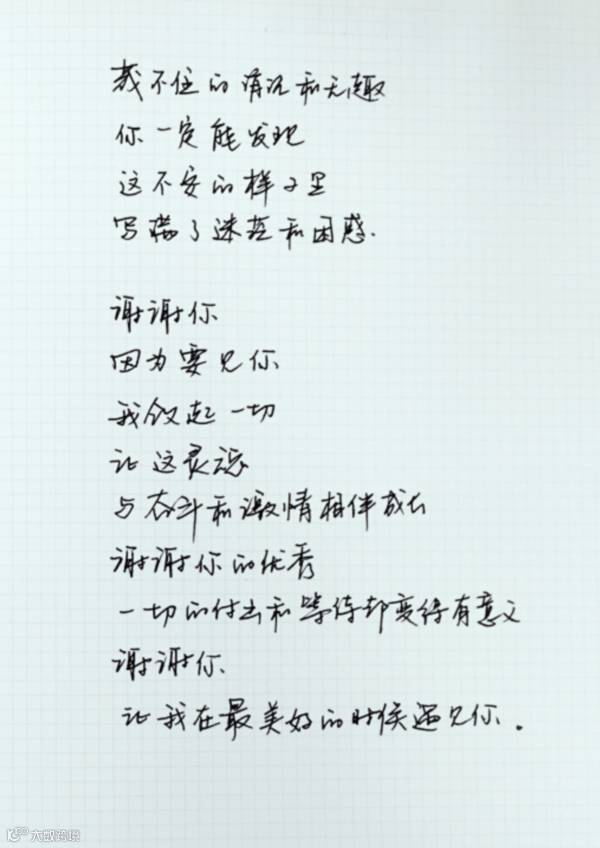 我不住的情况和无趣
你一定能发现
这不安的样子里
写满了迷茫和困惑.
谢谢你
因为要见你
我收起一切
让这灵魂
与奋斗和激情相伴成长
谢谢你的优秀
一切的付出和等待却变得有意义
谢谢你.
让我在最美好的时候遇见你。
大数跨境